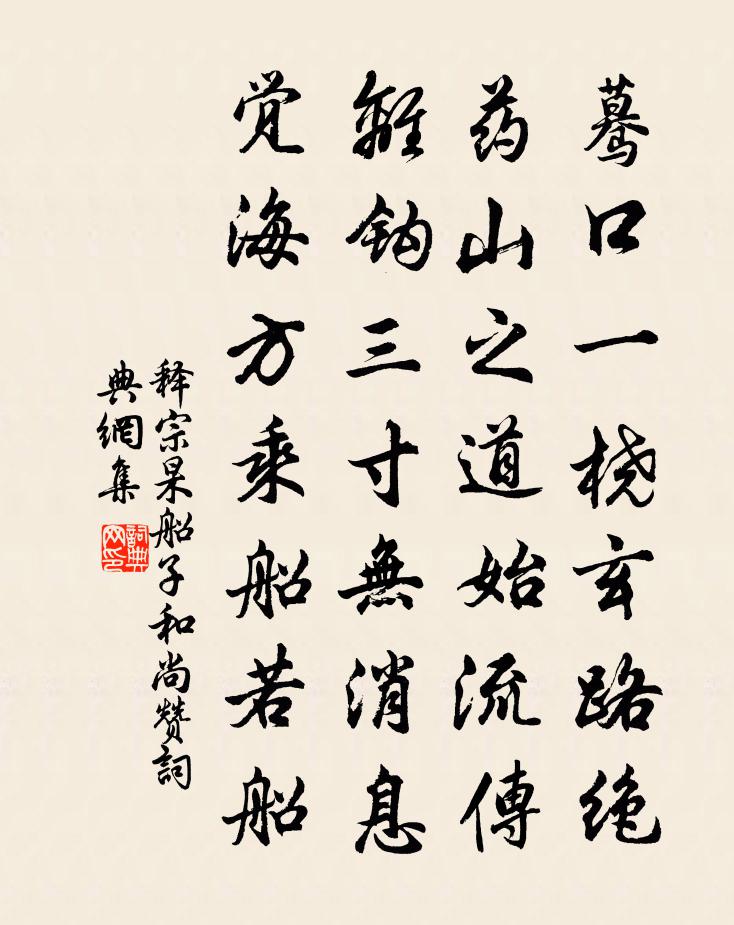 蓦口一桡玄路绝
药山之道始流傳
離钩三寸無消息
觉海方乘船若船
释宗杲船子和尚赞詞
典網集
詞典网印